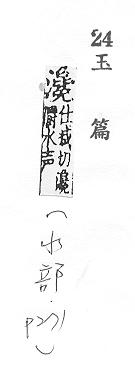 24
玉篇
瀺仕切瀺
灂水声
(水部.
p271)